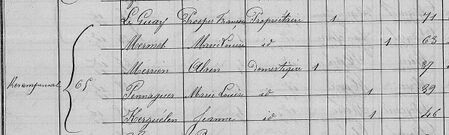 Le Guay Prosper François Propriétaire 1 71
Mermet Marie Louise id 1 63
Kerampunal 65 Merrien Alain Domestique 1 37
Pennaguer Marie Louise id 1 39
Kerguélen Jeanne id 1 46